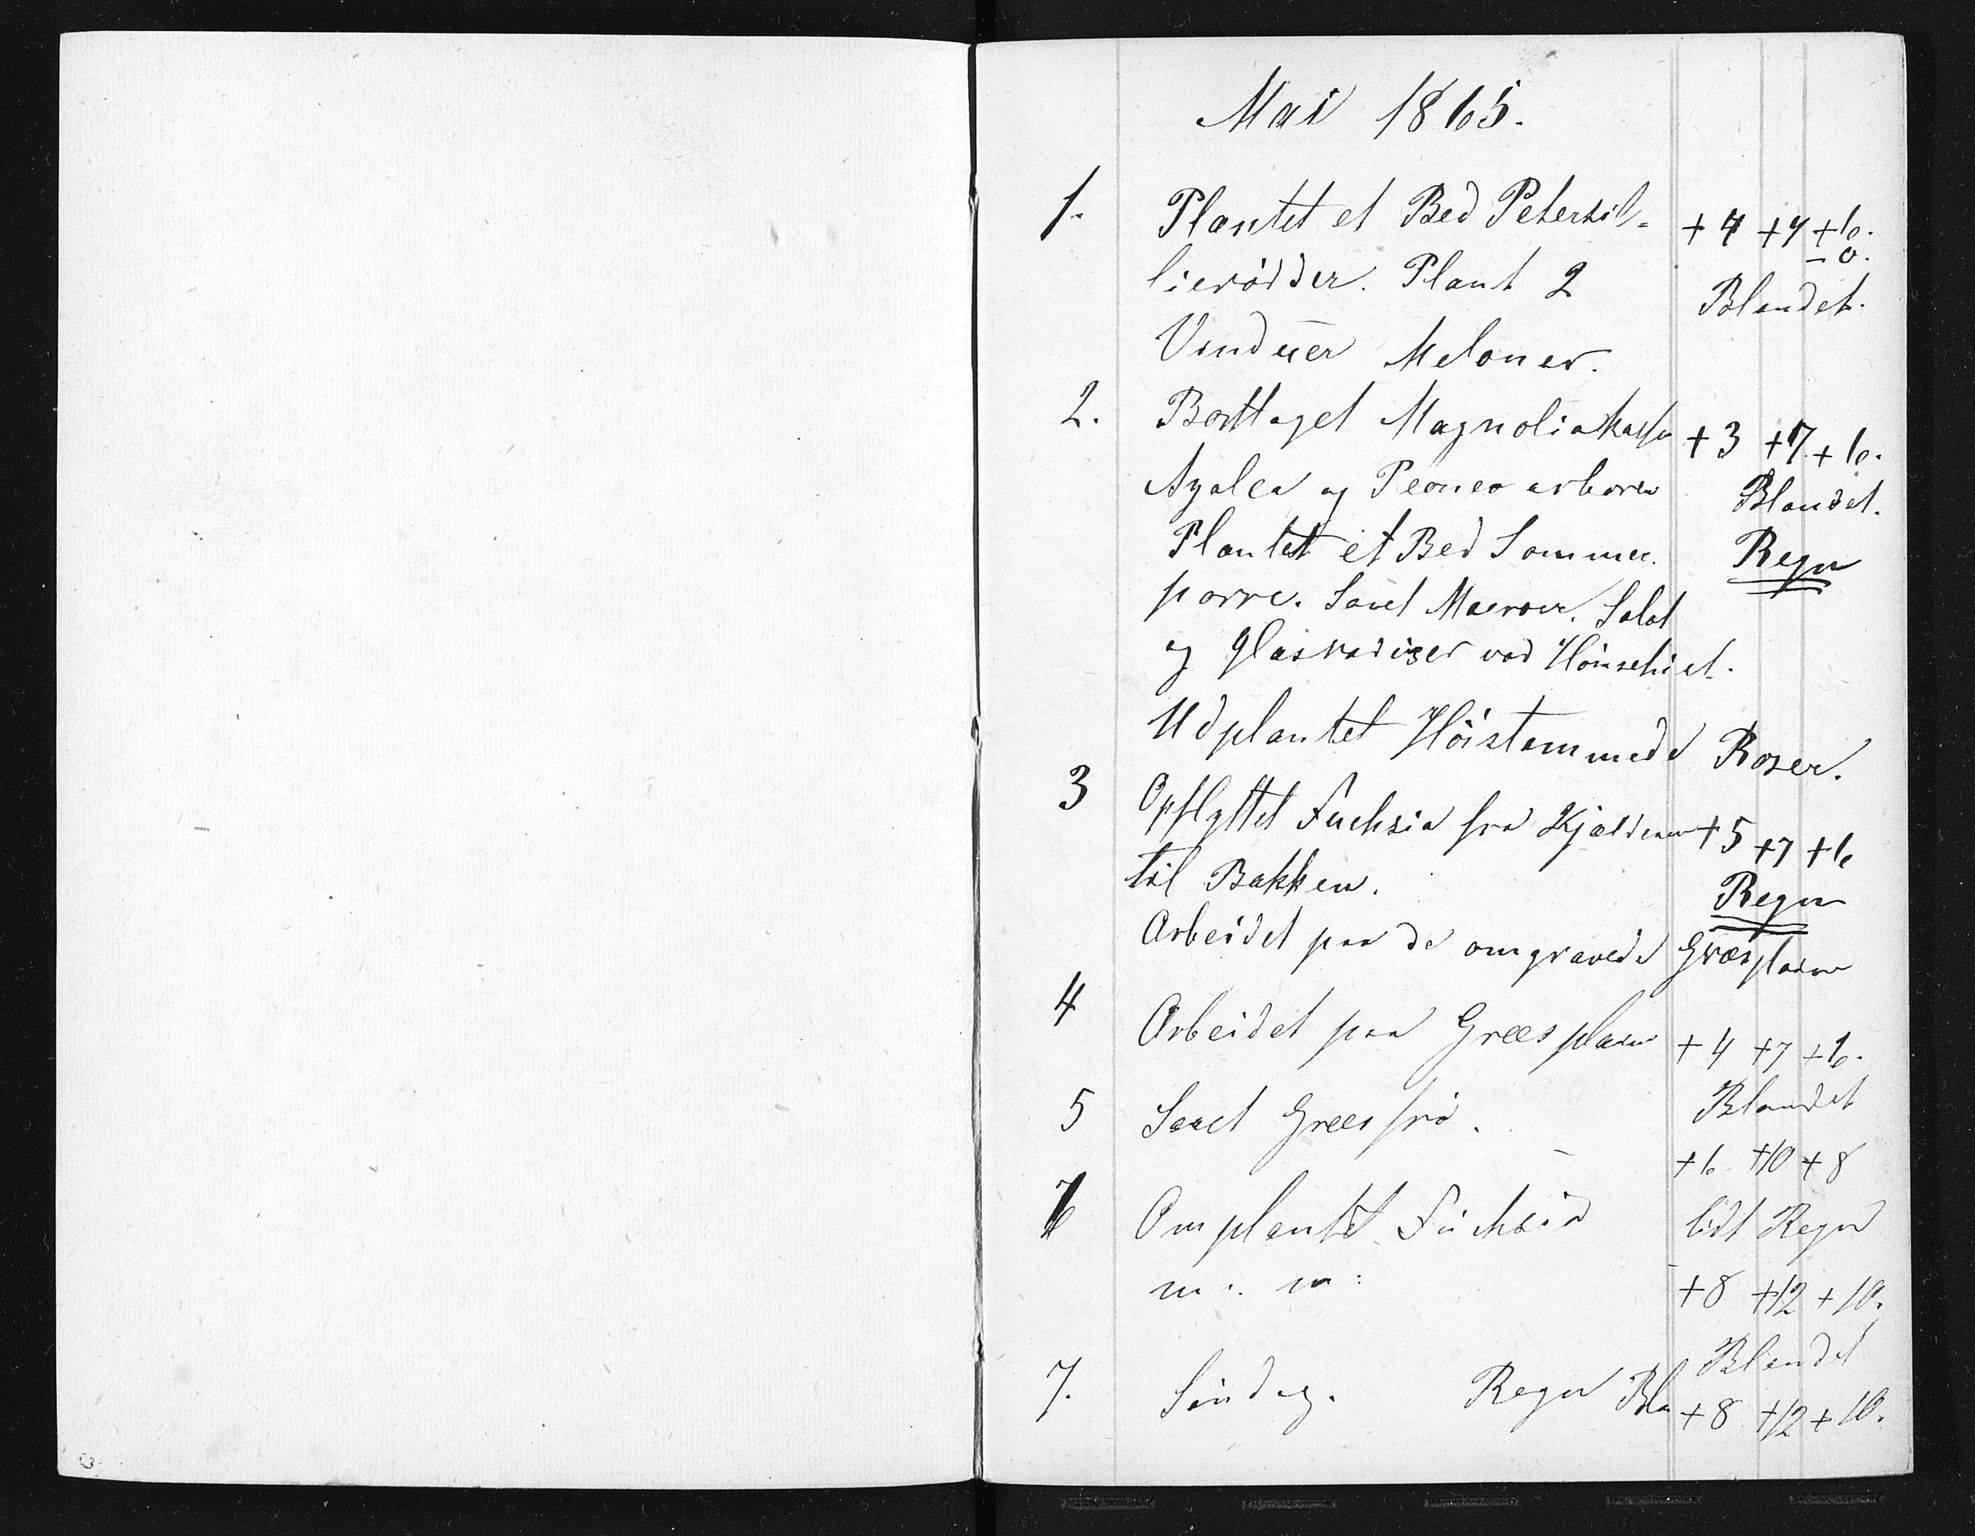 Mai 1865.
1. Plantet et Bed Petersil- +4 +7 +6.
-0.
lierödder. Plant 2 Blandet.
Vinduer Meloner.
2. Borttaget Magnoliakasse +3 +7 +6.
Azalea og Peonea arborea Blandet.
Plantet et Bed Sommer Regn
porre. Saaet Salat
og glasradiser ved Hönsehuset.
Udplantet Höistemmede Roser.
3 Opflyttet Fuchsia fra Kjælderen +5 +7 +6
til Bakken. Regn
Arbeidet paa de omgravede Græsplaene
4 Arbeidet paa Græsplaene +4 +7 +6.
Blandet
5 Saaet Græsfrö.
+6 +10 +8
6 Omplantet Fuchsia lidt Regn
m. m: +8 +12 +10.
Blandet
7. Söndag. Regn Bla +8 +12 +10.